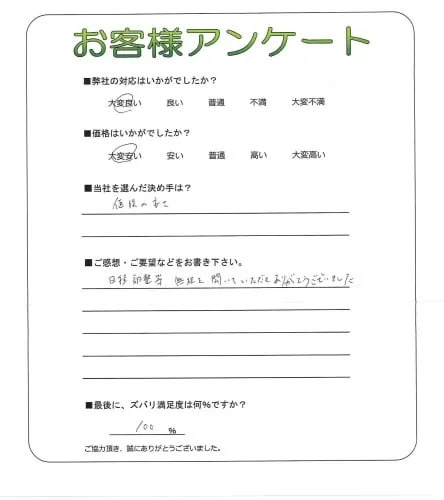 お客様アンケート
■弊社の対応はいかがでしたか?
大変良い 良い 普通 不満 大変不満
■価格はいかがでしたか?
大変安い 安い 普通 高い 大変高い
■当社を選んだ決め手は?
値段の安さ
■ご感想・ご要望などをお書き下さい。
日程調整等 無理を聞いていただきありがとうございました
■最後に、ズバリ満足度は何%ですか?
100 %
ご協力頂き、誠にありがとうございました。